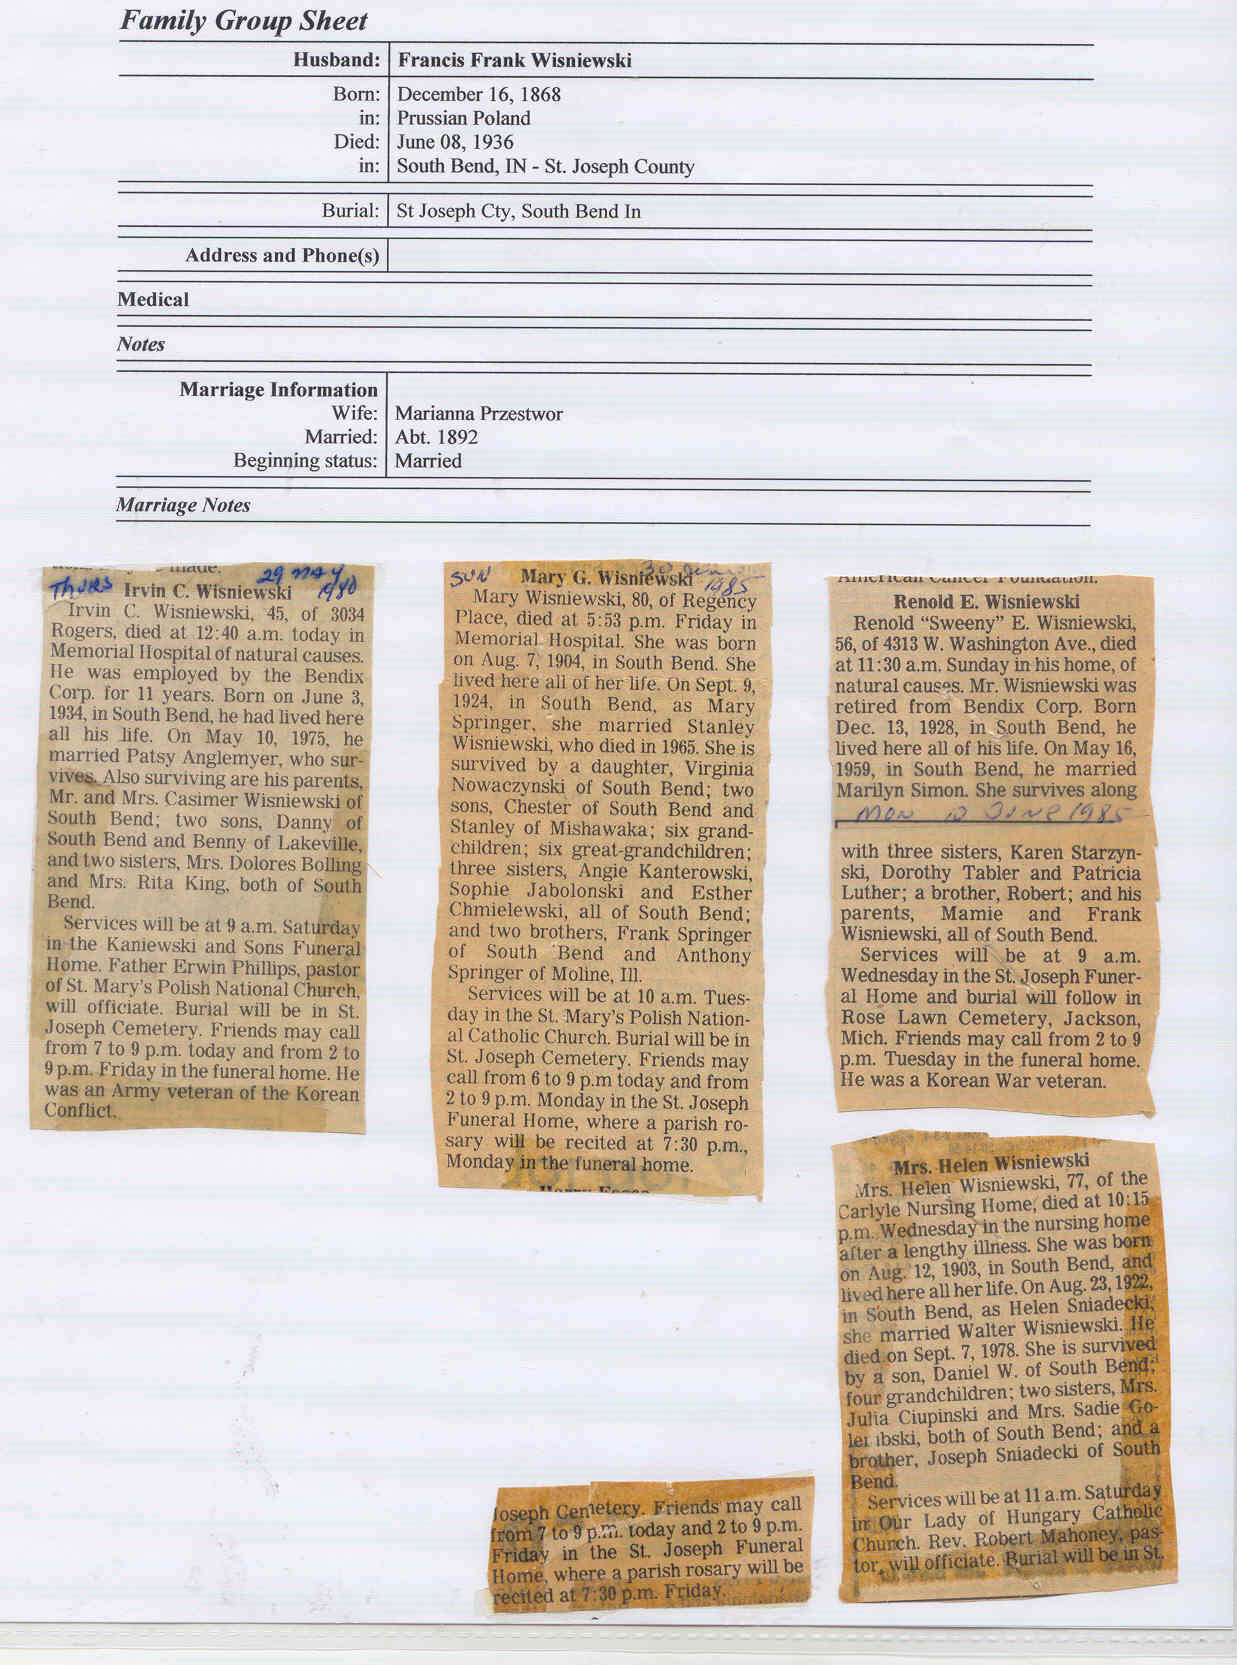 Family Group Sheet
Husband: Francis Frank Wisniewski
Born: December 16, 1868
in: Prussian Poland
Died: June 08, 1936
in: South Bend, IN - St. Joseph County
Burial: St Joseph Cty, South Bend In
Address and Phone(s)
Medical
Notes
Marriage Information
Wife: Marianna Przestwor
Married: Abt. 1892
Beginning status: Married
Marriage Notes
made.
Thurs 29 May 1980
Irvin C. Wisniewski
Irvin C. Wisniewski, 45, of 3034
Rogers, died at 12:40 a.m. today in
Memorial Hospital of natural causes.
He was employed by the Bendix
Corp. for 11 years. Born on June 3,
1934, in South Bend, he had lived here
all his life. On May 10, 1975, he
married Patsy Anglemyer, who sur-
vives. Also surviving are his parents,
Mr. and Mrs. Casimer Wisniewski of
South Bend; two sons, Danny of
South Bend and Benny of Lakeville,
and two sisters, Mrs. Dolores Bolling
and Mrs. Rita King, both of South
Bend.
Services will be at 9 a.m. Saturday
in the Kaniewski and Sons Funeral
Home. Father Erwin Phillips, pastor
of St. Mary's Polish National Church,
will officiate. Burial will be in St.
Joseph Cemetery. Friends may call
from 7 to 9 p.m. today and from 2 to
9 p.m. Friday in the funeral home. He
was an Army veteran of the Korean
Conflict.
SUN 30 June 1985
Mary G. Wisniewski
Mary Wisniewski, 80, of Regency
Place, died at 5:53 p.m. Friday in
Memorial Hospital. She was born
on Aug. 7, 1904, in South Bend. She
lived here all of her life. On Sept. 9,
1924, in South Bend, as Mary
Springer, she married Stanley
Wisniewski, who died in 1965. She is
survived by a daughter, Virginia
Nowaczynski of South Bend; two
sons, Chester of South Bend and
Stanley of Mishawaka; six grand-
children; six great-grandchildren;
three sisters, Angie Kanterowski,
Sophie Jabolonski and Esther
Chmielewski, all of South Bend;
and two brothers, Frank Springer
of South Bend and Anthony
Springer of Moline, Ill.
Services will be at 10 a.m. Tues-
day in the St. Mary's Polish Nation-
al Catholic Church. Burial will be in
St. Joseph Cemetery. Friends may
call from 6 to 9 p.m today and from
2 to 9 p.m. Monday in the St. Joseph
Funeral Home, where a parish ro-
sary will be recited at 7:30 p.m.,
Monday in the funeral home.
American Cancer Foundation.
Renold E. Wisniewski
Renold "Sweeny" E. Wisniewski,
56, of 4313 W. Washington Ave., died
at 11:30 a.m. Sunday in his home, of
natural causes. Mr. Wisniewski was
retired from Bendix Corp. Born
Dec. 13, 1928, in South Bend, he
lived here all of his life. On May 16,
1959, in South Bend, he married
Marilyn Simon. She survives along
MON 10 JUNE 1985
with three sisters, Karen Starzyn-
ski, Dorothy Tabler and Patricia
Luther; a brother, Robert; and his
parents, Mamie and Frank
Wisniewski, all of South Bend.
Services will be at 9 a.m.
Wednesday in the St. Joseph Funer-
al Home and burial will follow in
Rose Lawn Cemetery, Jackson,
Mich. Friends may call from 2 to 9
p.m. Tuesday in the funeral home.
He was a Korean War veteran.
Mrs. Helen Wisniewski
Mrs. Helen Wisniewski, 77, of the
Carlyle Nursing Home, died at 10:15
p.m. Wednesday in the nursing home
after a lengthy illness. She was born
on Aug. 12, 1903, in South Bend, and
lived here all her life. On Aug. 23, 1922,
in South Bend, as Helen Sniadecki,
she married Walter Wisniewski. He
died on Sept. 7, 1978. She is survived
by a son, Daniel W. of South Bend;
four grandchildren; two sisters, Mrs.
Julia Ciupinski and Mrs. Sadie Go-
both of South Bend; and a
brother, Joseph Sniadecki of South
Bend.
Services will be at 11 a.m. Saturday
in Our Lady of Hungary Catholic
Church. Rev. Robert Mahoney, pas-
tor, will officiate. Burial will be in St.
Joseph Cemetery. Friends may call
from 7 to 9 p.m. today and 2 to 9 p.m.
Friday in the St. Joseph Funeral
Home, where a parish rosary will be
recited at 7:30 p.m. Friday.